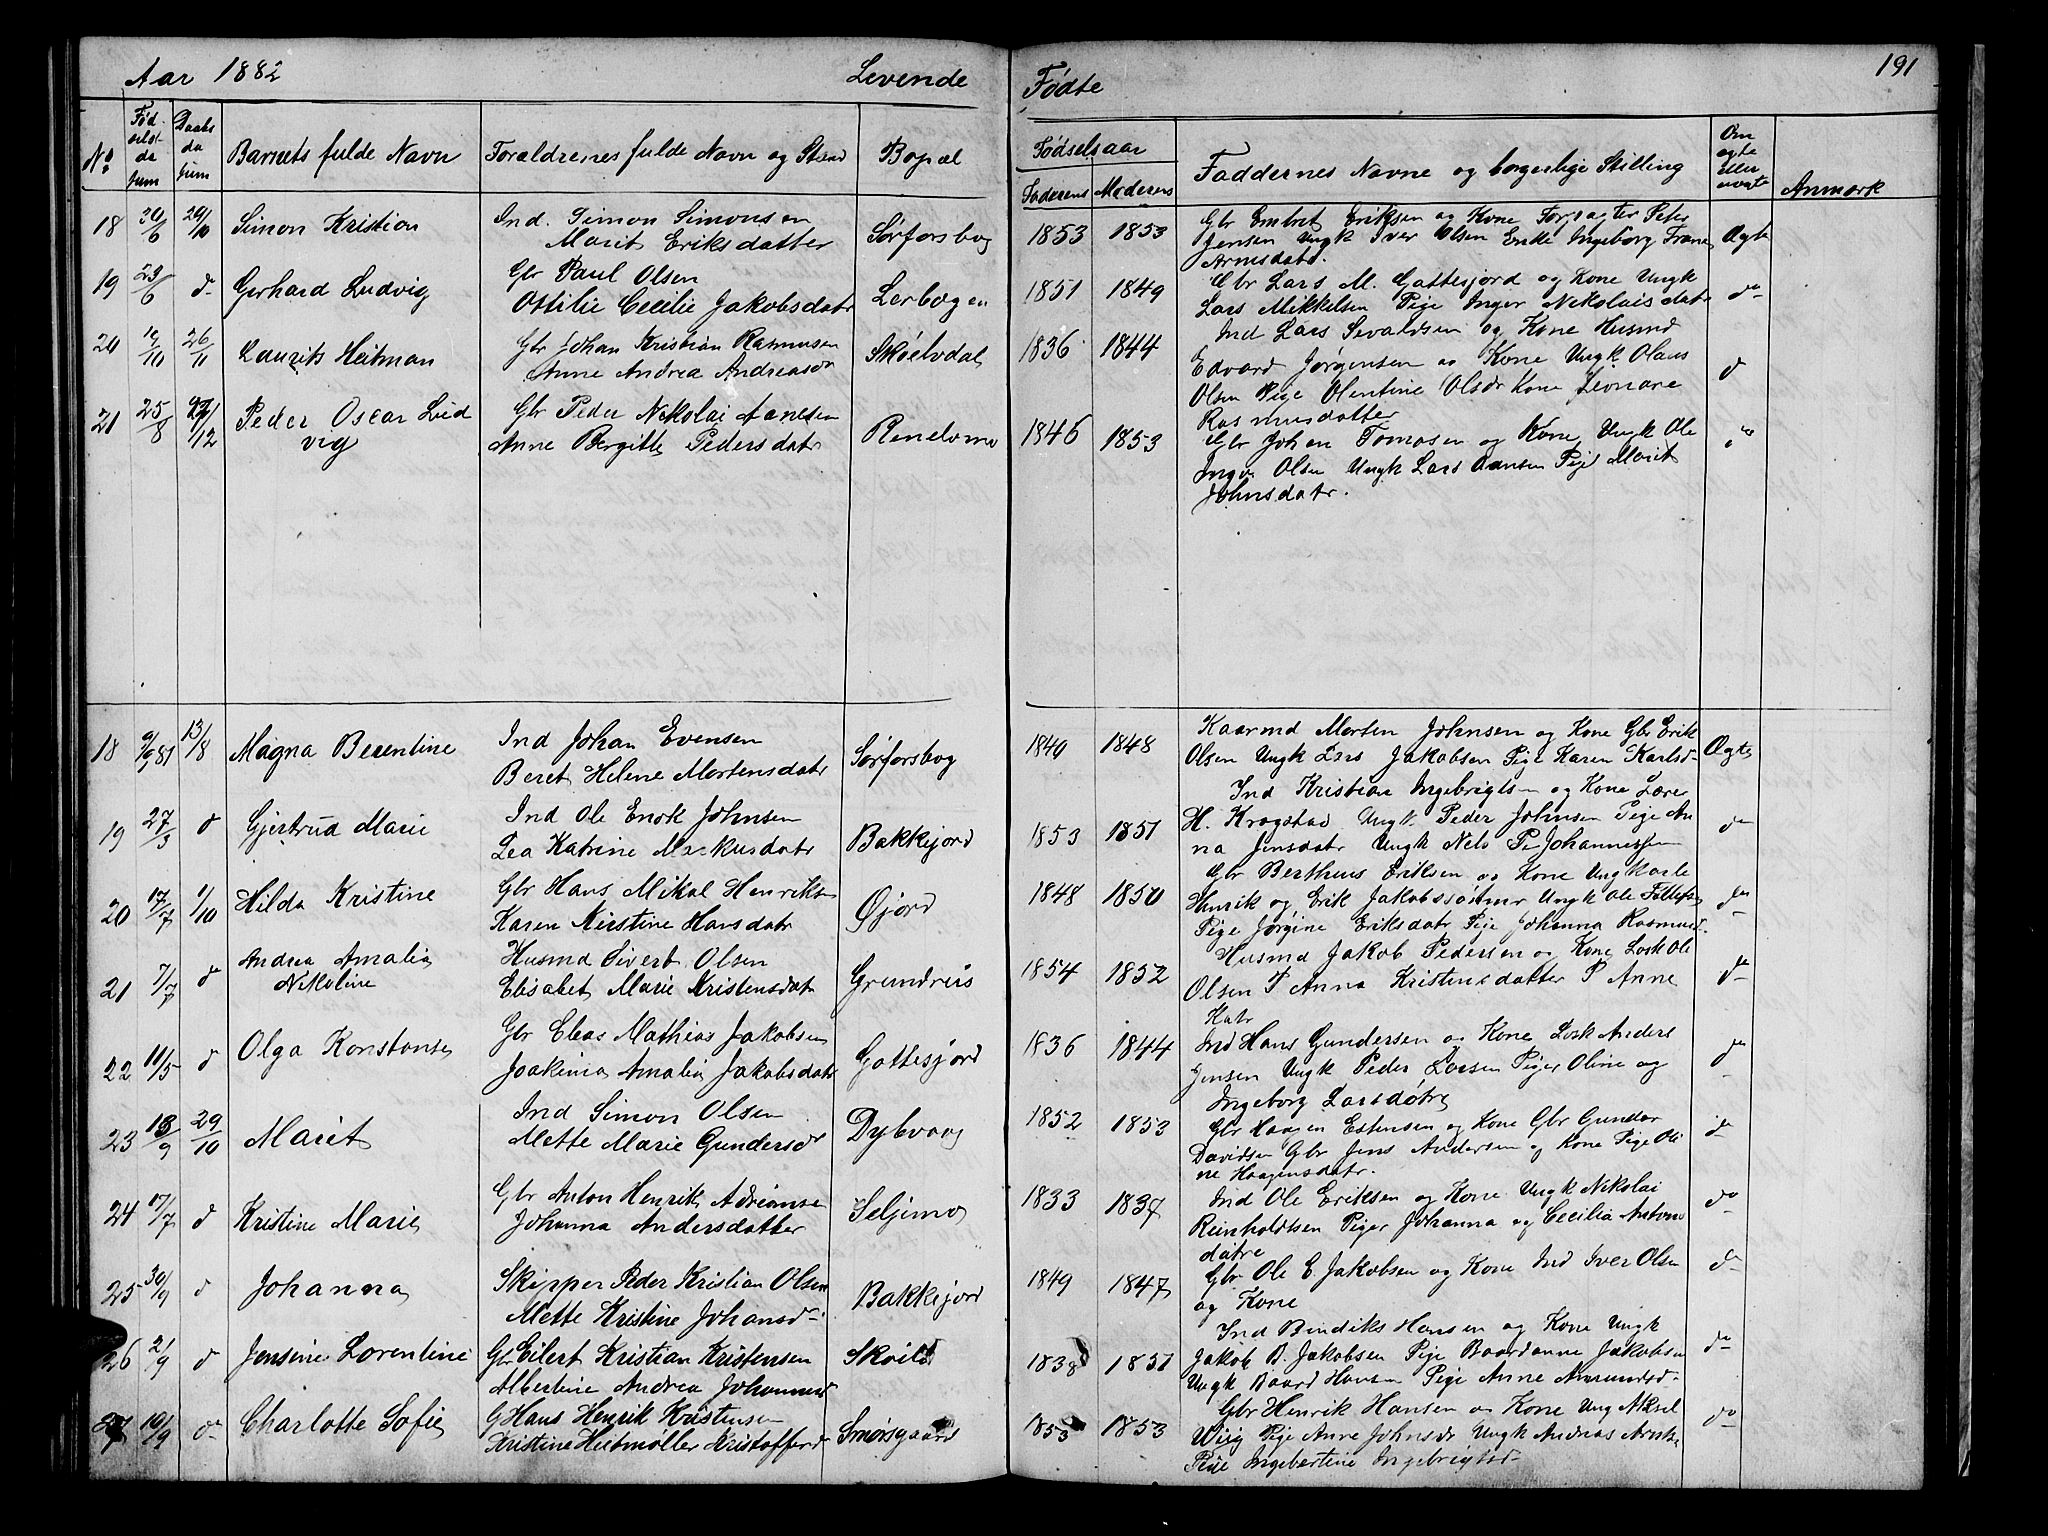 Aar 1882
Levende
Fødte
191
No
Fødselsdatum
Daabsdatum
Barnets fulde Navn
Forældrenes fulde Navn og Stand
Bopæl
Fødselsaar
Faderens Moderens
Faddernes Navne og borgerlige Stilling
Om ægte eller uægte
Anmærk
18 20/6 29/10 Simon Kristian
Ind. Simon Simonsen
Marit Eriksdatter
Sørforsbog
1853 1853
Gbr Embret Eriksen og Kone Forpagter Peter
Jensen Ungk Iver Olsen Enke Ingeborg
Arnsdatr.
Ægte
19 23/6 d- Gerhard Ludvig
Gbr Paul Olsen
Ottilie Cecilie Jakobsdatr
Lerbogen
1851 1849
Gbr Lars M. Gattesjord og Kone Ungk
Lars Mikkelsen Pige Inger Nikolaisdatr
do
20 /10 26/11 Laurits Heitman
Gbr Johan Kristian Rasmusen
Anne Andrea Andreasdr
Skøelvdal
1836 1844
Ind Lars Sevaldsen og Kone Husmd
Edvard Jørgensen og Kone Ungk Olaus
Olsen Pige Olentine Olsdr Kone Leonare
Rasmusdatter
d
21 25/8 /12 Peder Oscar Lud
vig
Gbr Peder Nikolai Hansen
Anne Bergitte Pedersdatr
Renelvmo
1846 1853
Gbr Johan Tomasen og Kone Ungk Ole
Olsen Ungk Lars Hansen Pige Marit
Johnsdatr.
do
18 9/9 81 13/8 Magna Berentine
Ind Johan Evensen
Beret Helene Mortensdatr
Sørforsbog
1840 1848
Kaarmd Morten Johnsen og Kone Gbr Erik
Olsen Ungk Lars Jakobsen Pige Karen Karlsd-
Ægte
19 27/3 d Gjertrud Marie
Ind Ole Enok Johnsen
Lea Katrine Markusdatr
Bakkejord
1853 1851
Ind Kristian Ingebrigtsen og Kone Lærer
H. Krogstad Ungk Peder Johnsen Pige An
na Jensdatr Ungk Nels P Johannessen
do
20 17/7 1/10 Hilda Kristine
Gbr Hans Mikal Henriksen
Karen Kirstine Hansdatr
Øjord
1848 1850
Gbr Bertheus Eriksen og Kone Ungkarle
Henrik og Erik Jakobssønner Ungk Ole
Pige Jørgine Eriksdatr Pige Johanna Rasmusd-
do
21 7/7 d Andrea Amalia
Nikoline
Husmd Sivert Olsen
Elisabet Marie Kristensdatr
Grundreis
1854 1852
Husmd Jakob Pedersen og Kone Losk Ole
Olsen P Anna Kristensdatter P Anne
Hatr
do
22 11/5 d Olga Konstanse
Gbr Elias Mathias Jakobsen
Joakima Amalia Jakobsdatr
Gattesjord
1836 1844
Ind Hans Gundersen og Kone Losk Anders
Jensen Ungk Peder Larsen Piger Oline og
Ingeborg Larsdøtre
do
23 18/9 29/10 Maret
Ind Simon Olsen
Mette Marie Gundersdr
Dybvaag
1852 1853
Gbr Haagen Estensen og Kone Gbr Gunder
Davidsen Gbr Jens Andersen og Kone Pige Oli
ne Haagensdatr.
do
24 17/7 d Kristine Marie
Gbr Anton Henrik Adriansen
Johanna Andersdatter
Seljemo
1833 1837
Ind Ole Eriksen og Kone Ungk Nikolai
Reinholdtsen Piger Johanna og Cecilia Antons
døtre
do
25 30/9 d Johanna
Skipper Peder Kristian Olsen
Mette Kristine Johansd-
Bakkejord
1849 1847
Gbr Ole E Jakobsen og Kone Ind Iver Olsen
og Kone
do
26 2/9 d Jensine Lorentine
Gbr Eilert Kristian Kristensen
Albertine Andrea Johannesd
Skøelv
1838 1851
Ind Bendiks Hansen og Kone Ungk
Jakob B. Jakobsen Pige Baardanne Jakobsen
Ungk Baard Hansen Pige Anne Amundsd-
do
27 10/9 d- Charlotte Sofie
G Hans Henrik Kristensen
Kristine Heitmøller Kristofferdr
Smørsgaard
1853 1853
Gbr Henrik Hansen og Kone Ung Aksel
Wiig Pige Anne Johnsdr Ungk Andreas
Pige Ingebertine Ingebrigtsd-
do